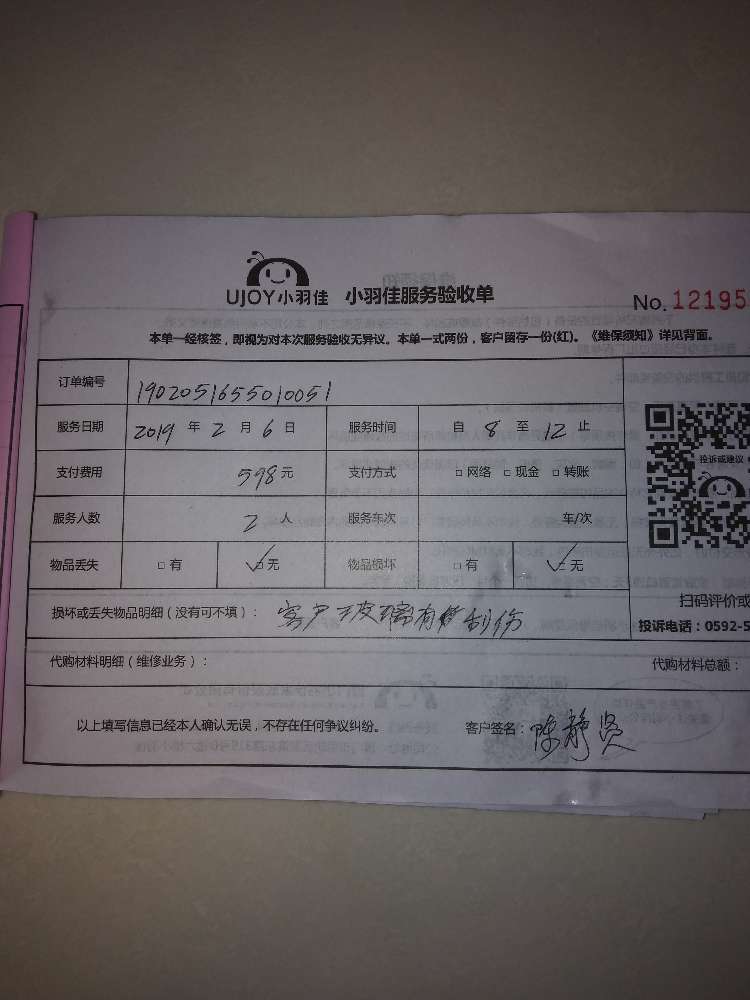 UJOY小羽佳 小羽佳服务验收单
No. 12195
本单一经核签，即视为对本次服务验收无异议。本单一式两份，客户留存一份(红)。《维保须知》详见背面。
订单编号 1902051655010051
服务日期 2019 年 2 月 6 日 服务时间 自 8 至 12 止
支付费用 598元 支付方式 □网络 □现金 □转账
服务人数 2 人 服务车次 车/次
物品丢失 □有 ☑无 物品损坏 □有 ☑无
投诉或建议
扫码评价或
损坏或丢失物品明细（没有可不填）： 客户玻璃有 制伤
投诉电话：0592-5
代购材料明细（维修业务）： 代购材料总额：
以上填写信息已经本人确认无误，不存在任何争议纠纷。 客户签名：陈静贤